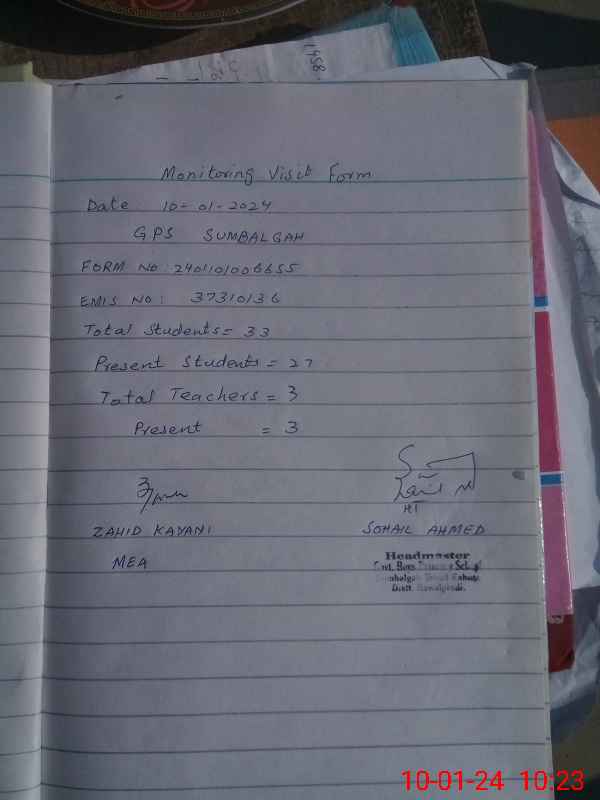 1958.
Monitoring Visit Form
Date 10-01-2024
GPS SUMBALGAH
FORM NO: 2401101006655
EMIS NO: 37310136
Total Students = 33
Present Students = 27
Total Teachers = 3
Present = 3
HT
ZAHID KAYANI
SOHAIL AHMED
MEA
Headmaster
Govt. Boys Primary School
Sumbalgah Tehsil Kahuta
Distt. Rawalpindi.
10-01-24 10:23